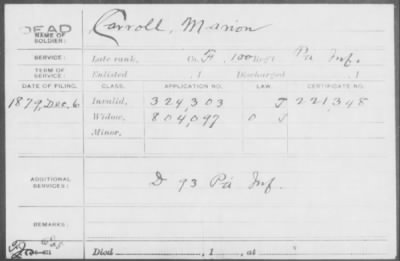 DEAD
NAME OF SOLDIER: Carroll, Marion
SERVICE: Late rank, Co. F, 100 Reg't Pa Inf.
TERM OF SERVICE: Enlisted , 1 Discharged , 1
DATE OF FILING. CLASS. APPLICATION NO. LAW. CERTIFICATE NO.
1879, Dec. 6 Invalid, 324,303 J 221,348
Widow, 804,097 J
Minor,
ADDITIONAL SERVICES: D 93 Pa Inf.
REMARKS:
Died , 1 , at